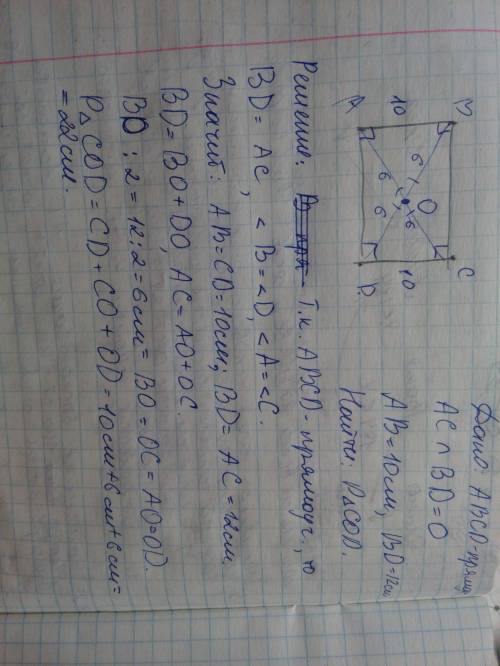 Дано: ABCD-прямоу
AC ∩ BD = O
AB = 10см, BD = 12см
Найти: P△COD.
B
C
A
D
O
10
10
6
6
6
6
Решение: Т.к. ABCD - прямоуг., то
BD = AC, < B = < D, < A = < C.
Значит: AB = CD = 10см; BD = AC = 12см.
BD = BO + DO, AC = AO + OC.
BD : 2 = 12 : 2 = 6 см = BO = OC = AO = OD.
P△COD = CD + CO + OD = 10см + 6см + 6см =
= 22см.